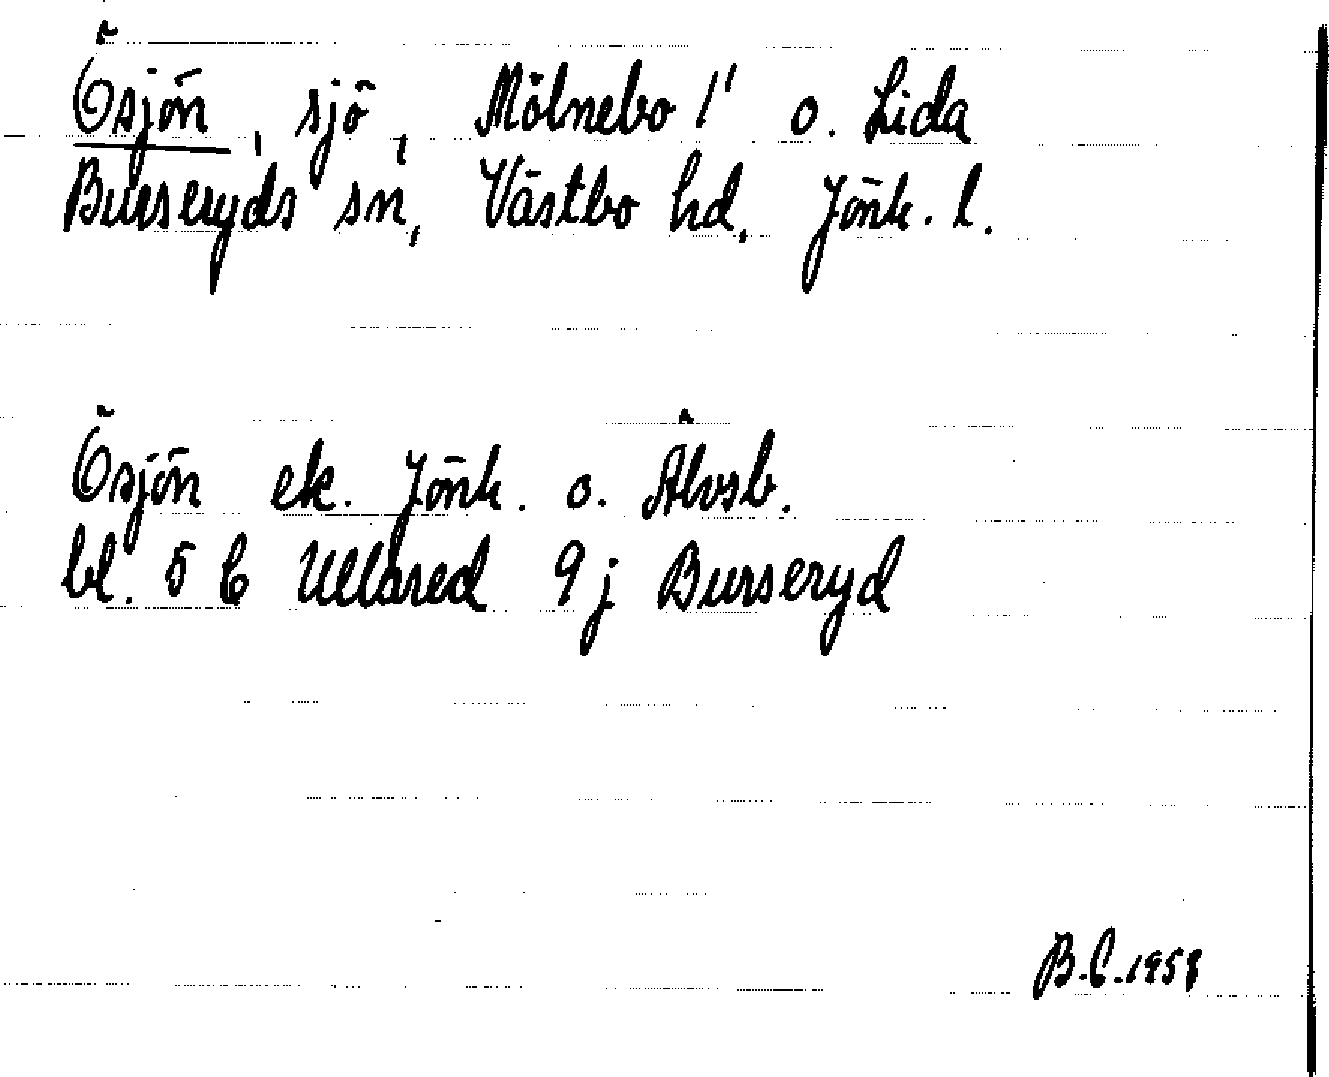 Ösjön, sjö, Mölnebo 1¹ o. Lida
Burseryds sn, Västbo hd, Jönk. l.
Ösjön ek. Jönk. o. Älvsb.
bl. 5 C Ullared 9 j Burseryd
B.C. 1958